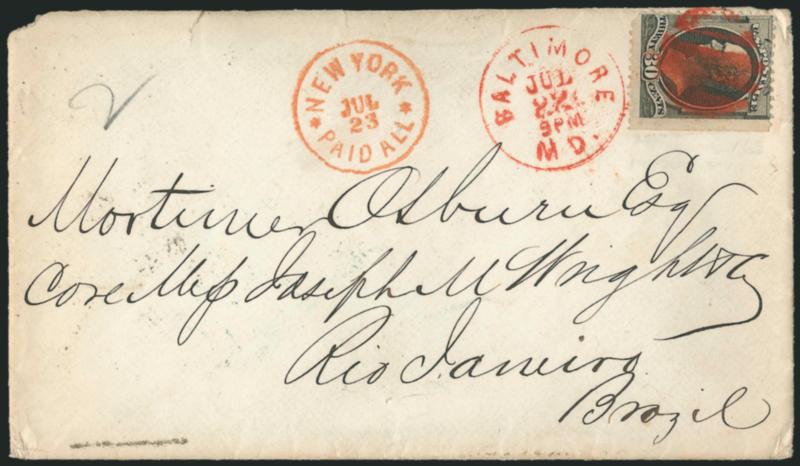 NEW YORK
JUL
23
PAID ALL
BALTIMORE
JUL
22
9PM
MD.
30
Mortimer Osburn Esq
Care Mess Joseph M Wright & Co
Rio Janeiro
Brazil